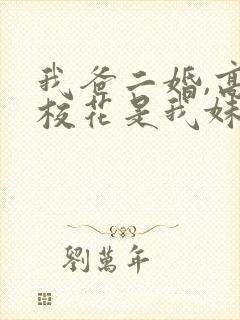 我爸二婚,高
校花是我妹
劉萬年